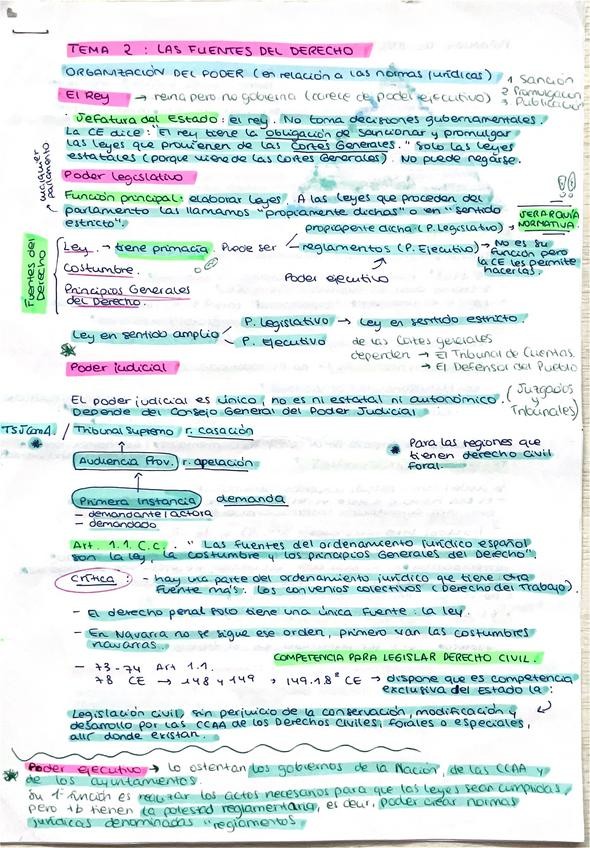 TEMA 2 : LAS FUENTES DEL DERECHO
ORGANIZACIÓN DEL PODER (en relación a las normas jurídicas)
1 Sanción
2 Promulgación
3 Publicación
El Rey → reina pero no gobierna (carece de poder ejecutivo)
Jefatura del Estado: el rey. No toma decisiones gubernamentales.
La CE dice: "El rey tiene la obligación de sancionar y promulgar
las leyes que provienen de las Cortes Generales." Solo las leyes
estatales (porque viene de las Cortes Generales). No puede negarse.
Poder legislativo
cualquier parlamento
Función principal: elaborar leyes. A las leyes que proceden del
parlamento las llamamos "propiamente dichas" o en "sentido
estricto".
!!
JERARQUÍA
NORMATIVA.
Fuentes del Derecho
propiamente dicha (P. Legislativo) →
Ley. → tiene primacía. Puede ser
reglamentos (P. Ejecutivo) → No es su
función pero
la CE les permite
hacerlas.
Costumbre.
Poder ejecutivo
Principios Generales
del Derecho.
Ley en sentido amplio
P. Legislativo → Ley en sentido estricto.
P. Ejecutivo
de las Cortes generales
dependen → El Tribunal de Cuentas.
→ El Defensor del Pueblo
Poder judicial
El poder judicial es único, no es ni estatal ni autonómico.
Depende del Consejo General del Poder Judicial
(Juzgados
y
Tribunales)
/ Tribunal Supremo r. casación
Audiencia Prov. r. apelación
* Para las regiones que
tienen derecho civil
foral.
Primera Instancia demanda
- demandante/actora
- demandado
Art. 1.1. C.c.: "Las fuentes del ordenamiento jurídico español
son la ley, la costumbre y los principios Generales del Derecho".
Crítica: - hay una parte del ordenamiento jurídico que tiene otra
fuente más: los convenios colectivos (derecho del Trabajo).
- El derecho penal solo tiene una única fuente: la ley.
- En Navarra no se sigue ese orden, primero van las costumbres
navarras.
COMPETENCIA PARA LEGISLAR DERECHO CIVIL.
- 73-74 Art 1.1.
78 CE → 148 y 149 → 149.1.8ª CE → dispone que es competencia
exclusiva del estado la:
Legislación civil, sin perjuicio de la conservación, modificación y
desarrollo por las CCAA de los Derechos Civiles, forales o especiales,
allí donde existan.
* Poder ejecutivo → lo ostentan los gobiernos de la Nación, de las CCAA y
de los ayuntamientos.
Su 1ª función es realizar los actos necesarios para que las leyes sean cumplidas,
pero tb tienen la potestad reglamentaria, es decir, poder crear normas
jurídicas denominadas "reglamentos